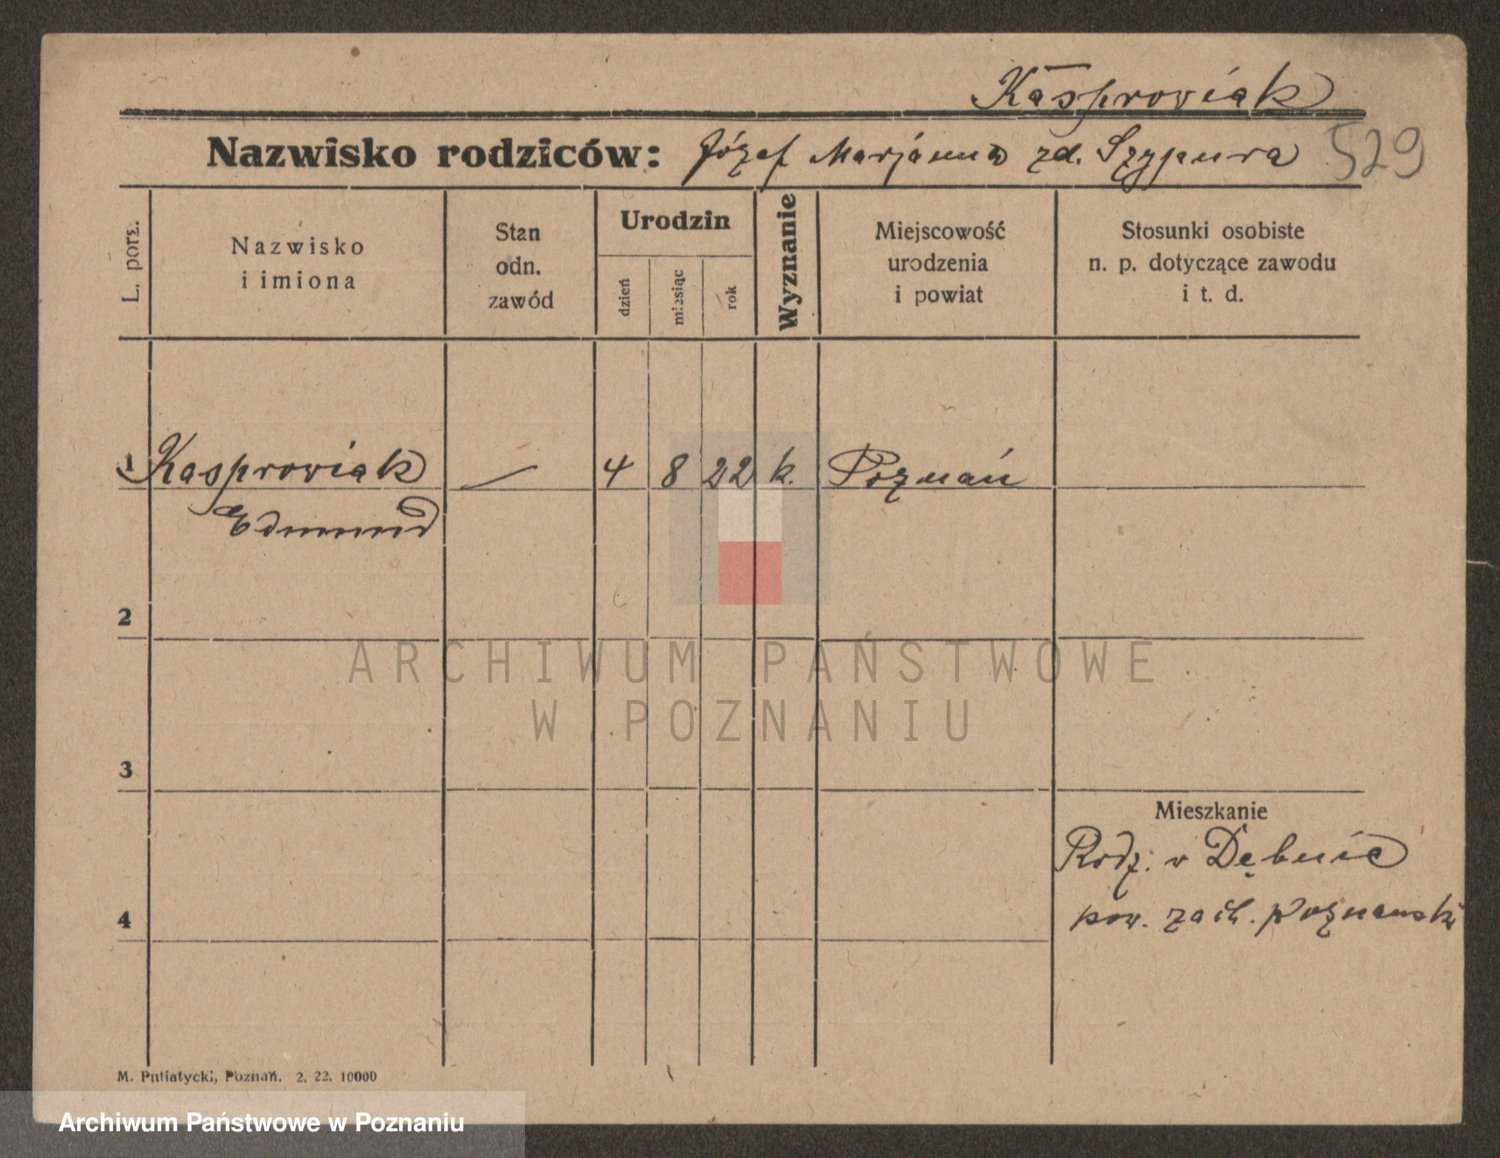 Kasprowiak
Nazwisko rodziców: Józef Marjanna zd. Szypura 529
L. porz.
Nazwisko
i imiona
Stan
odn.
zawód
Urodzin
dzień
miesiąc
rok
Wyznanie
Miejscowość
urodzenia
i powiat
Stosunki osobiste
n. p. dotyczące zawodu
i t. d.
1 Kasprowiak — 4 8 22 k. Poznań
Edmund
2
ARCHIWUM PAŃSTWOWE
W POZNANIU
3
Mieszkanie
Rodz. w Dębnie
4
pow. zach. Poznański
M. Putiatycki, Poznań. 2. 22. 10000
Archiwum Państwowe w Poznaniu